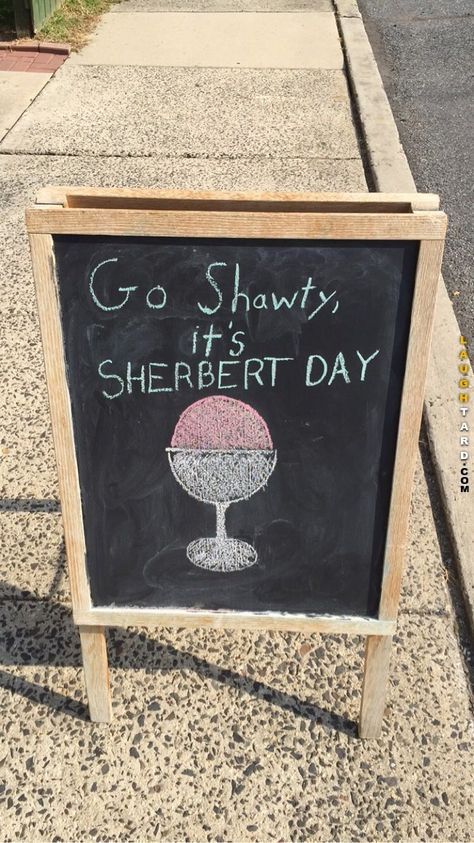 Go Shawty,
it's
SHERBERT DAY
LAUGHTARD.COM